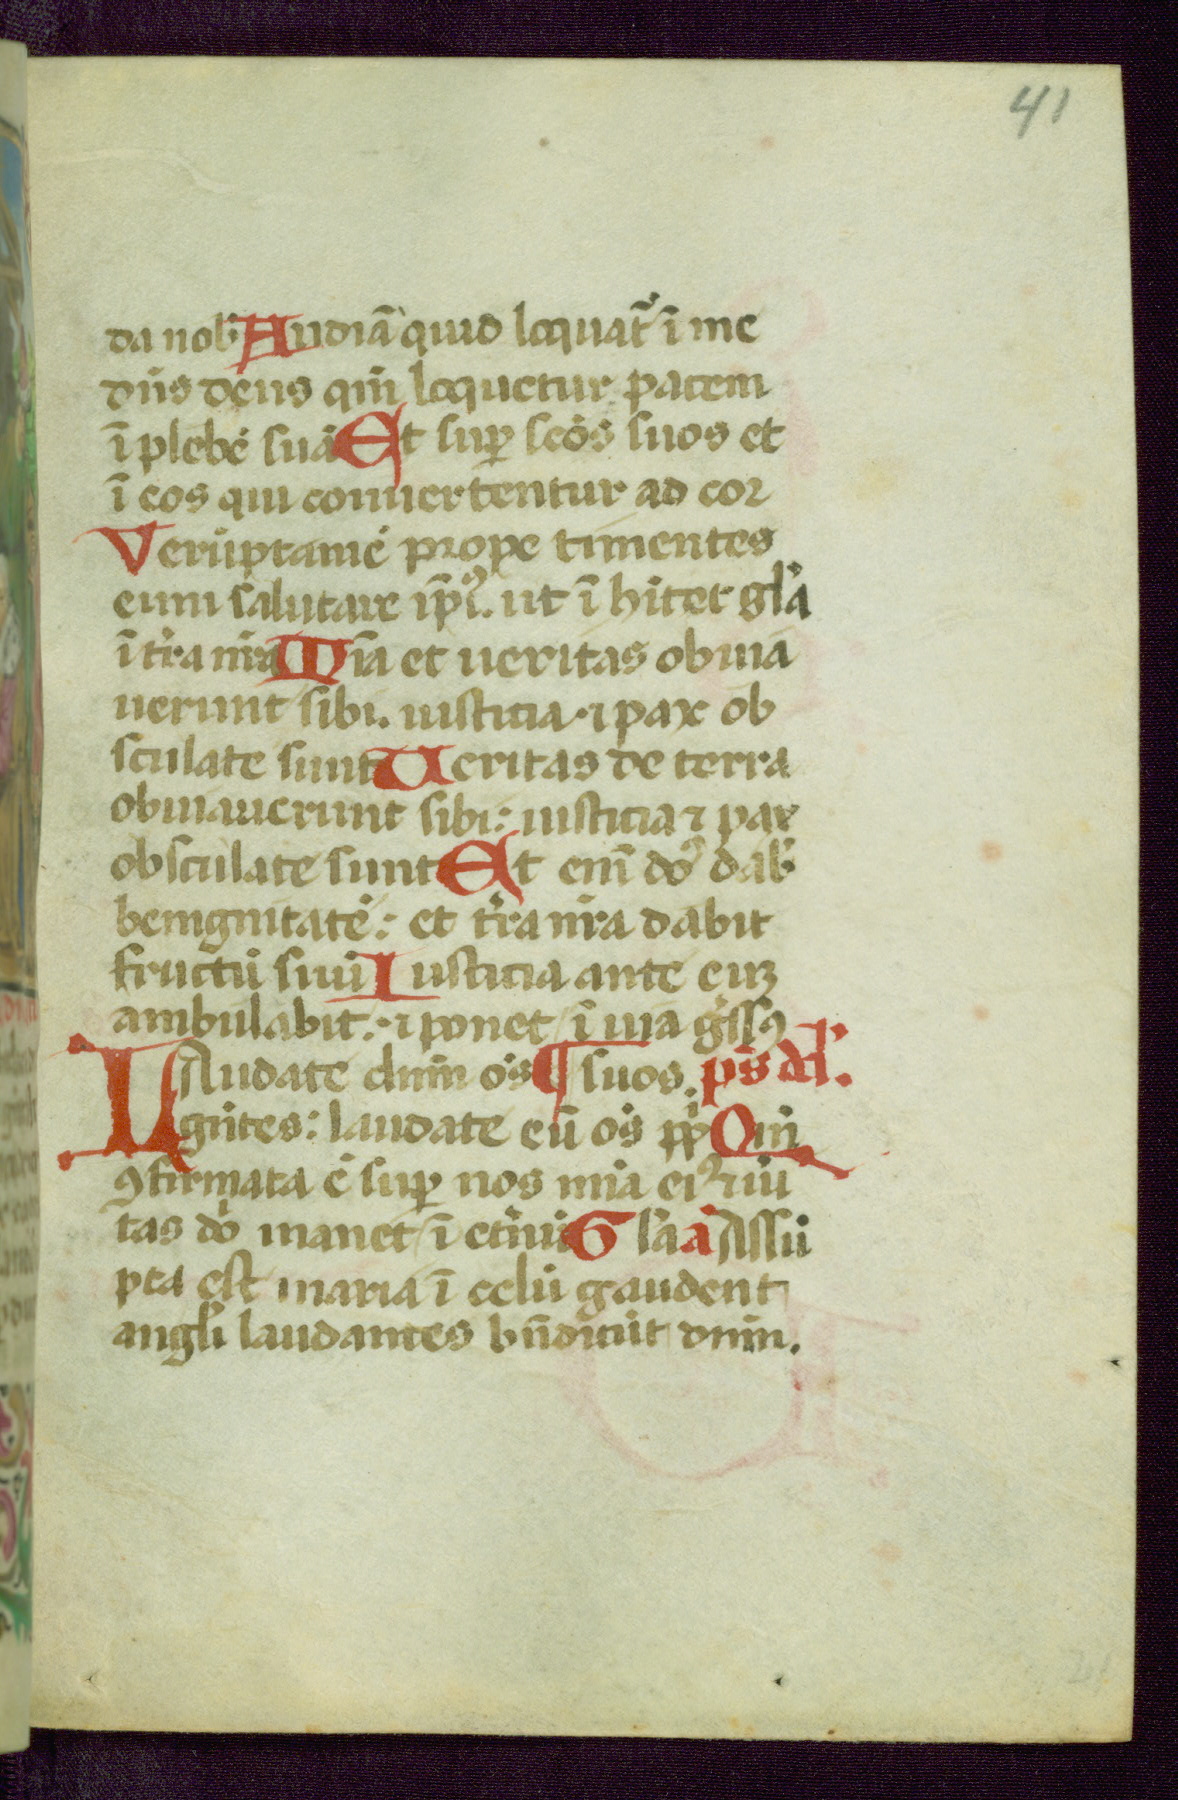 41
da nob̾ Audiā quid loquat᷑ ī me
dn̄s deus qm̄ loquetur pacem
ī plebē suā Et sup̱ sc̄os suos et
ī eos qui conuertentur ad cor
Verūptamē prope timentes
eum salutare ip̄iꝰ. ut ī hītet gl̄a
ī tr̄a nr̄a Mīa et ueritas obuia
uerunt sibi. iusticia ⁊ pax ob
sculate sunt Ueritas de terra
obuiauerunt sibi: iusticia ⁊ pax
obsculate sunt Et enī dn̄s dab̾
benignitatē: et tr̄a nr̄a dabit
fructū suū Iusticia ante eum
ambulabit. ⁊ ponet ī uia gr̄ssꝰ
LAudate dnm̄ os̄ ¶ suos. ps̄ dd̄.
gn̄tes: laudate eū os̄ pp̄li Qm̄
ꝯfirmata ē sup̱ nos mīa eiꝰ ⁊ ūi
tas dn̄i manet ī etn̄ū Gl̄a a̅ Assū
pta est maria ī celū gaudent
angl̄i laudantes bn̄dicūt dnm̄.